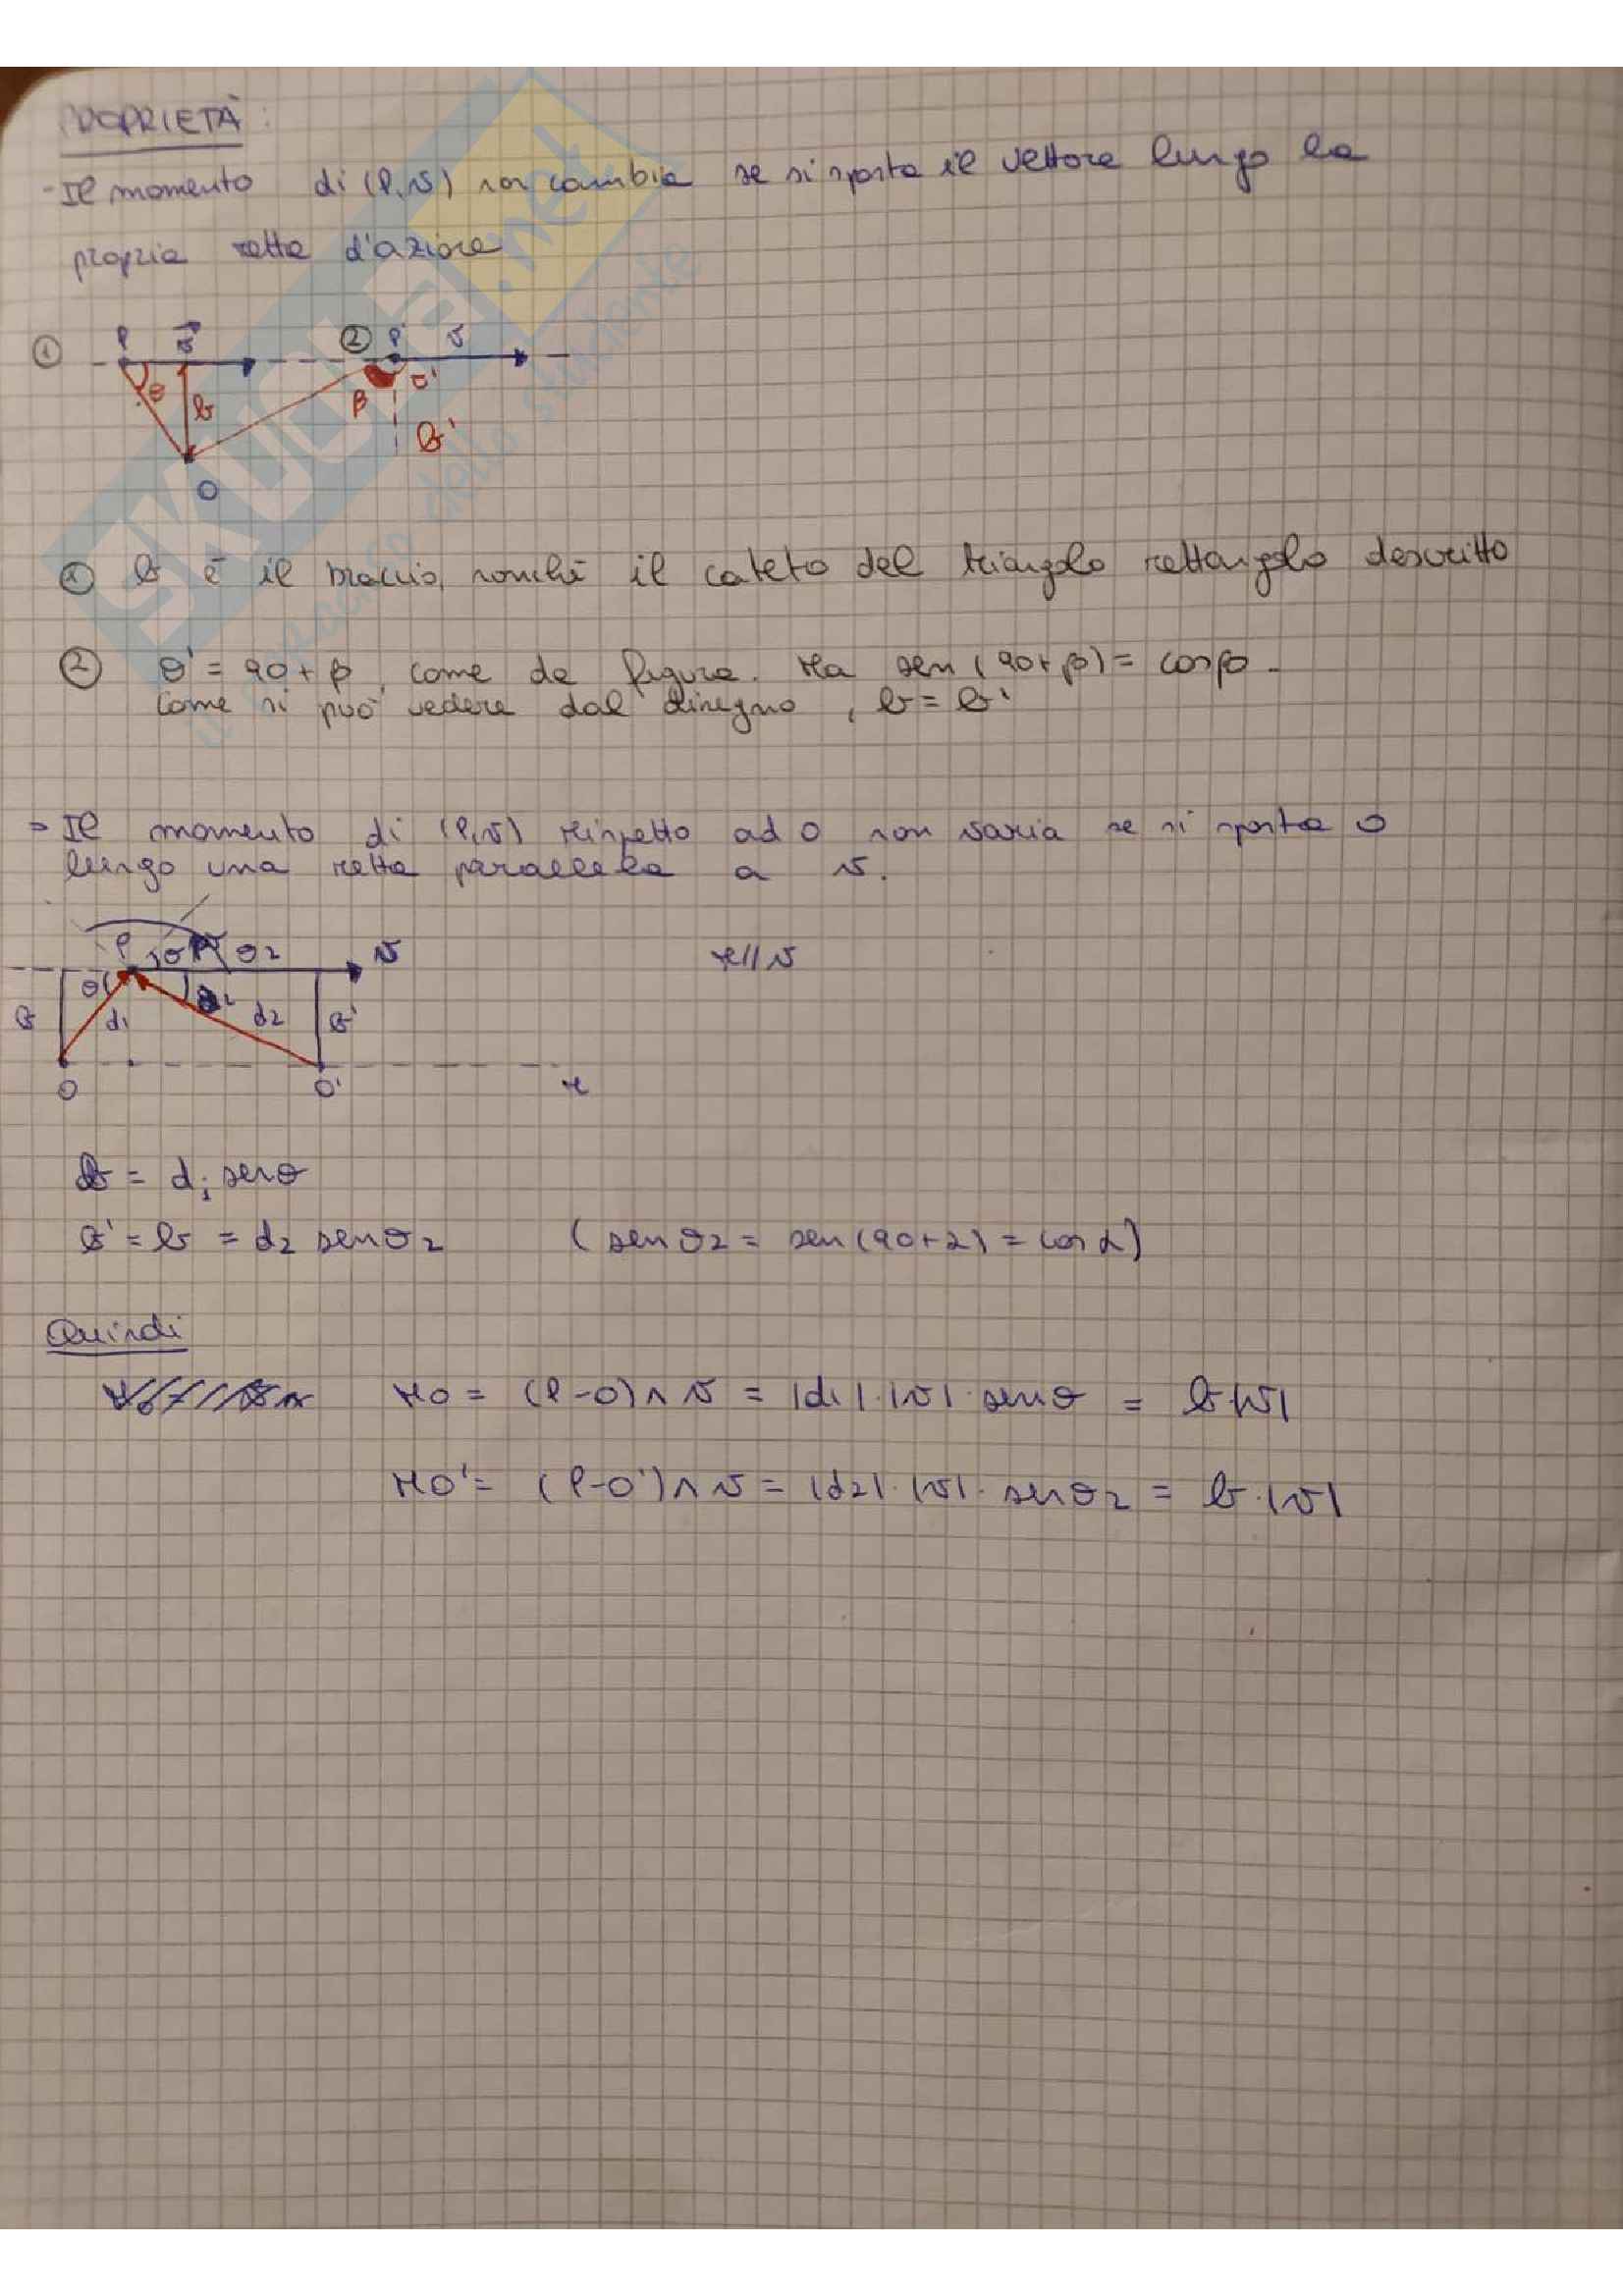 PROPRIETÀ:
- Il momento di (P,v) non cambia se si sposta il vettore lungo la
propria retta d'azione
① P v ② P v
θ b β θ'
b'
O
① b è il braccio, nonché il cateto del triangolo rettangolo descritto
② θ' = 90 + β, come da figura. Ma sen (90+β) = cosβ.
Come si può vedere dal disegno, b = b'
- Il momento di (P,v) rispetto ad O non varia se si sposta O
lungo una retta parallela a v.
P θ θ2 v r // v
θ
b d1 d2 b'
O O' r
b = d1 senθ
b' = b = d2 senθ2 (senθ2 = sen(90+α) = cosα)
Quindi
MO = (P-O)∧v = |d1|·|v|·senθ = b·|v|
MO' = (P-O')∧v = |d2|·|v|·senθ2 = b·|v|
SKUOLA.net
il paradiso dello studente